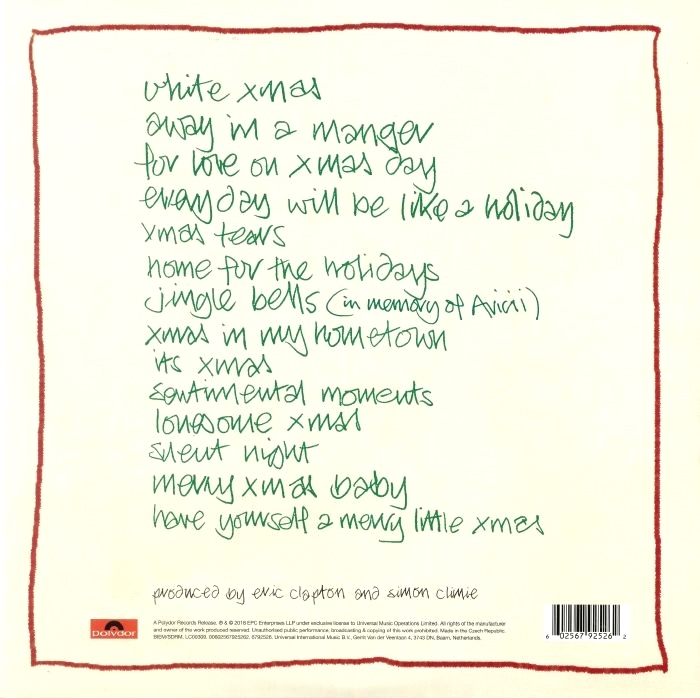 white xmas
away in a manger
for love on xmas day
everyday will be like a holiday
xmas tears
home for the holidays
jingle bells (in memory of Avicii)
xmas in my hometown
its xmas
sentimental moments
lonesome xmas
silent night
merry xmas baby
have yourself a merry little xmas
produced by eric clapton and simon climie
polydor
A Polydor Records Release. ℗ & © 2018 EPC Enterprises LLP under exclusive license to Universal Music Operations Limited. All rights of the manufacturer
and owner of the work produced reserved. Unauthorised public performance, broadcasting & copying of this work prohibited. Made in the Czech Republic.
BIEM/SDRM, LC00309, 00602567925262, 6792526. Universal International Music B.V., Gerrit van der Veenlaan 4, 3743 DN, Baarn, Netherlands.
6 02567 92526 2